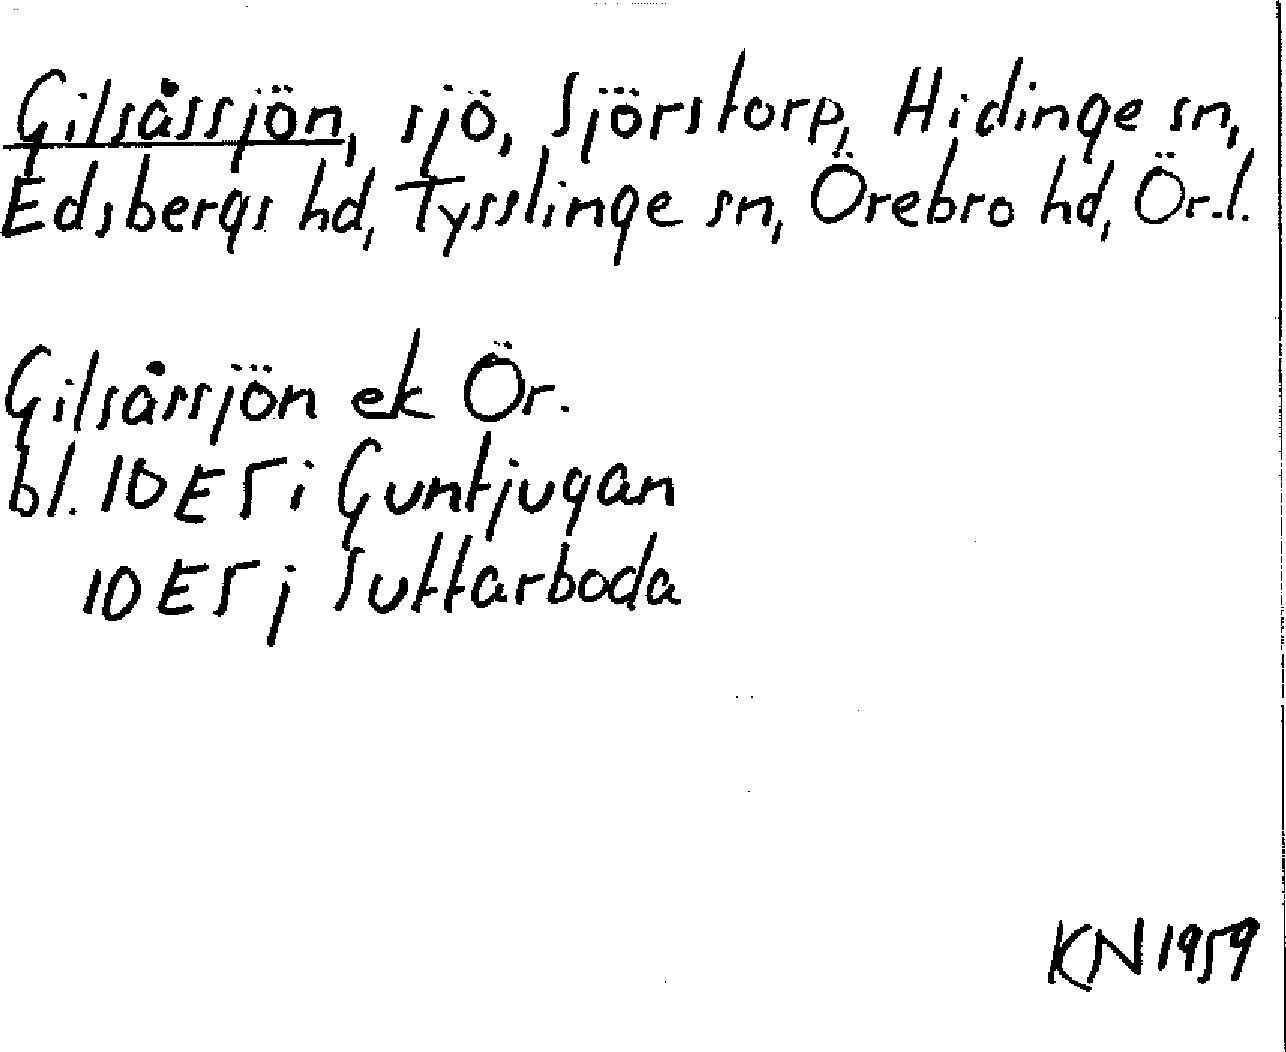 Gilsåssjön, sjö, Sjörstorp, Hidinge sn,
Edsbergs hd, Tysslinge sn, Örebro hd, Ör.l.
Gilsåssjön ek Ör.
bl. 10E5i Guntjugan
10E5j Suttarboda
KN1959